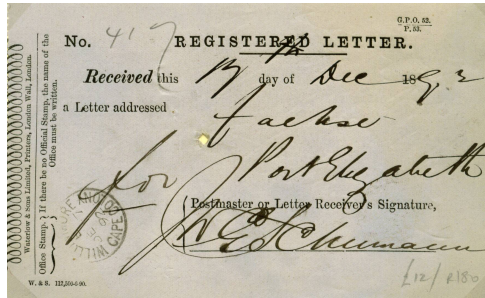 G.P.O. 53.
P. 53.
No. 417 REGISTERED LETTER.
Received this 17th day of Dec 1892
a Letter addressed
Port Elizabeth
for
Postmaster or Letter Receiver's Signature,
Schumann
W. & S. 112,500-6-90.
£12/R180
Office Stamp. { If there be no Official Stamp, the name of the
Office must be written.
Waterlow & Sons Limited, Printers, London Wall, London.